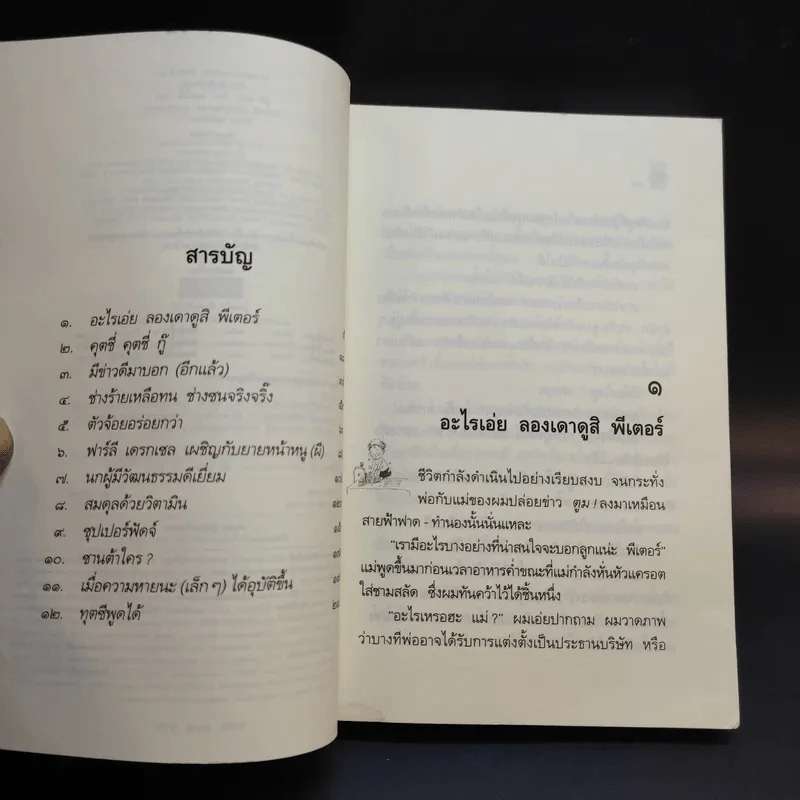 สารบัญ
๑. อะไรเอ่ย ลองเดาดูสิ พีเตอร์
๒. คุตชี่ คุตชี่ กู๊
๓. มีข่าวดีมาบอก (อีกแล้ว)
๔. ช่างร้ายเหลือทน ช่างซนจริงจริ๊ง
๕. ตัวจ้อยอร่อยกว่า
๖. ฟาร์ลี เดรกเซล เผชิญกับยายหน้าหนู (ผี)
๗. นกผู้มีวัฒนธรรมดีเยี่ยม
๘. สมดุลด้วยวิตามิน
๙. ซุปเปอร์ฟัดจ์
๑๐. ซานต้าใคร ?
๑๑. เมื่อความหายนะ (เล็ก ๆ) ได้อุบัติขึ้น
๑๒. ทุตซีพูดได้
๑
อะไรเอ่ย ลองเดาดูสิ พีเตอร์
ชีวิตกำลังดำเนินไปอย่างเรียบสงบ จนกระทั่ง
พ่อกับแม่ของผมปล่อยข่าว ตูม ! ลงมาเหมือน
สายฟ้าฟาด - ทำนองนั้นนั่นแหละ
"เรามีอะไรบางอย่างที่น่าสนใจจะบอกลูกแน่ะ พีเตอร์"
แม่พูดขึ้นมาก่อนเวลาอาหารค่ำขณะที่แม่กำลังหั่นหัวแครอต
ใส่ชามสลัด ซึ่งผมทันคว้าไว้ได้ชิ้นหนึ่ง
"อะไรเหรอฮะ แม่ ?" ผมเอ่ยปากถาม ผมวาดภาพ
ว่าบางทีพ่ออาจได้รับการแต่งตั้งเป็นประธานบริษัท หรือ